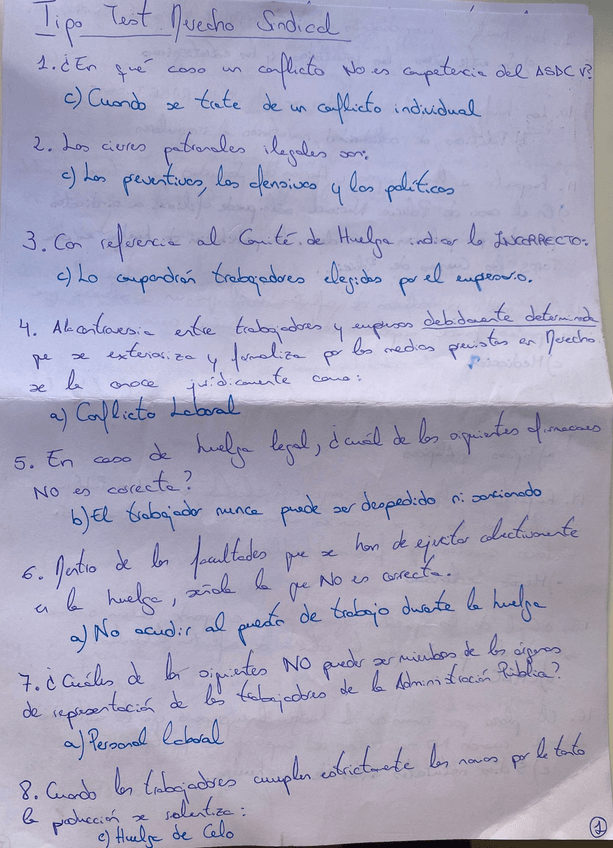 Tipo Test Derecho Sindical
1. ¿En qué caso un conflicto No es competencia del ASDCV?
c) Cuando se trate de un conflicto individual
2. Los cierres patronales ilegales son:
c) Los preventivos, los ofensivos y los políticos
3. Con referencia al Comité de Huelga indicar lo INCORRECTO:
c) Lo compondrán trabajadores elegidos por el empresario.
4. A la controversia entre trabajadores y empresas debidamente determinada
que se exterioriza y formaliza por los medios previstos en Derecho
se la conoce jurídicamente como:
a) Conflicto Laboral
5. En caso de huelga legal, ¿cuál de las siguientes afirmaciones
NO es correcta?
b) El trabajador nunca puede ser despedido ni sancionado
6. Dentro de las facultades que se han de ejecutar colectivamente
en la huelga, señala la que NO es correcta.
a) No acudir al puesto de trabajo durante la huelga
7. ¿Cuáles de los siguientes NO pueden ser miembros de los órganos
de representación de los trabajadores de la Administración Pública?
a) Personal laboral
8. Cuando los trabajadores cumplen estrictamente las normas por lo tanto
la producción se ralentiza:
c) Huelga de Celo
1